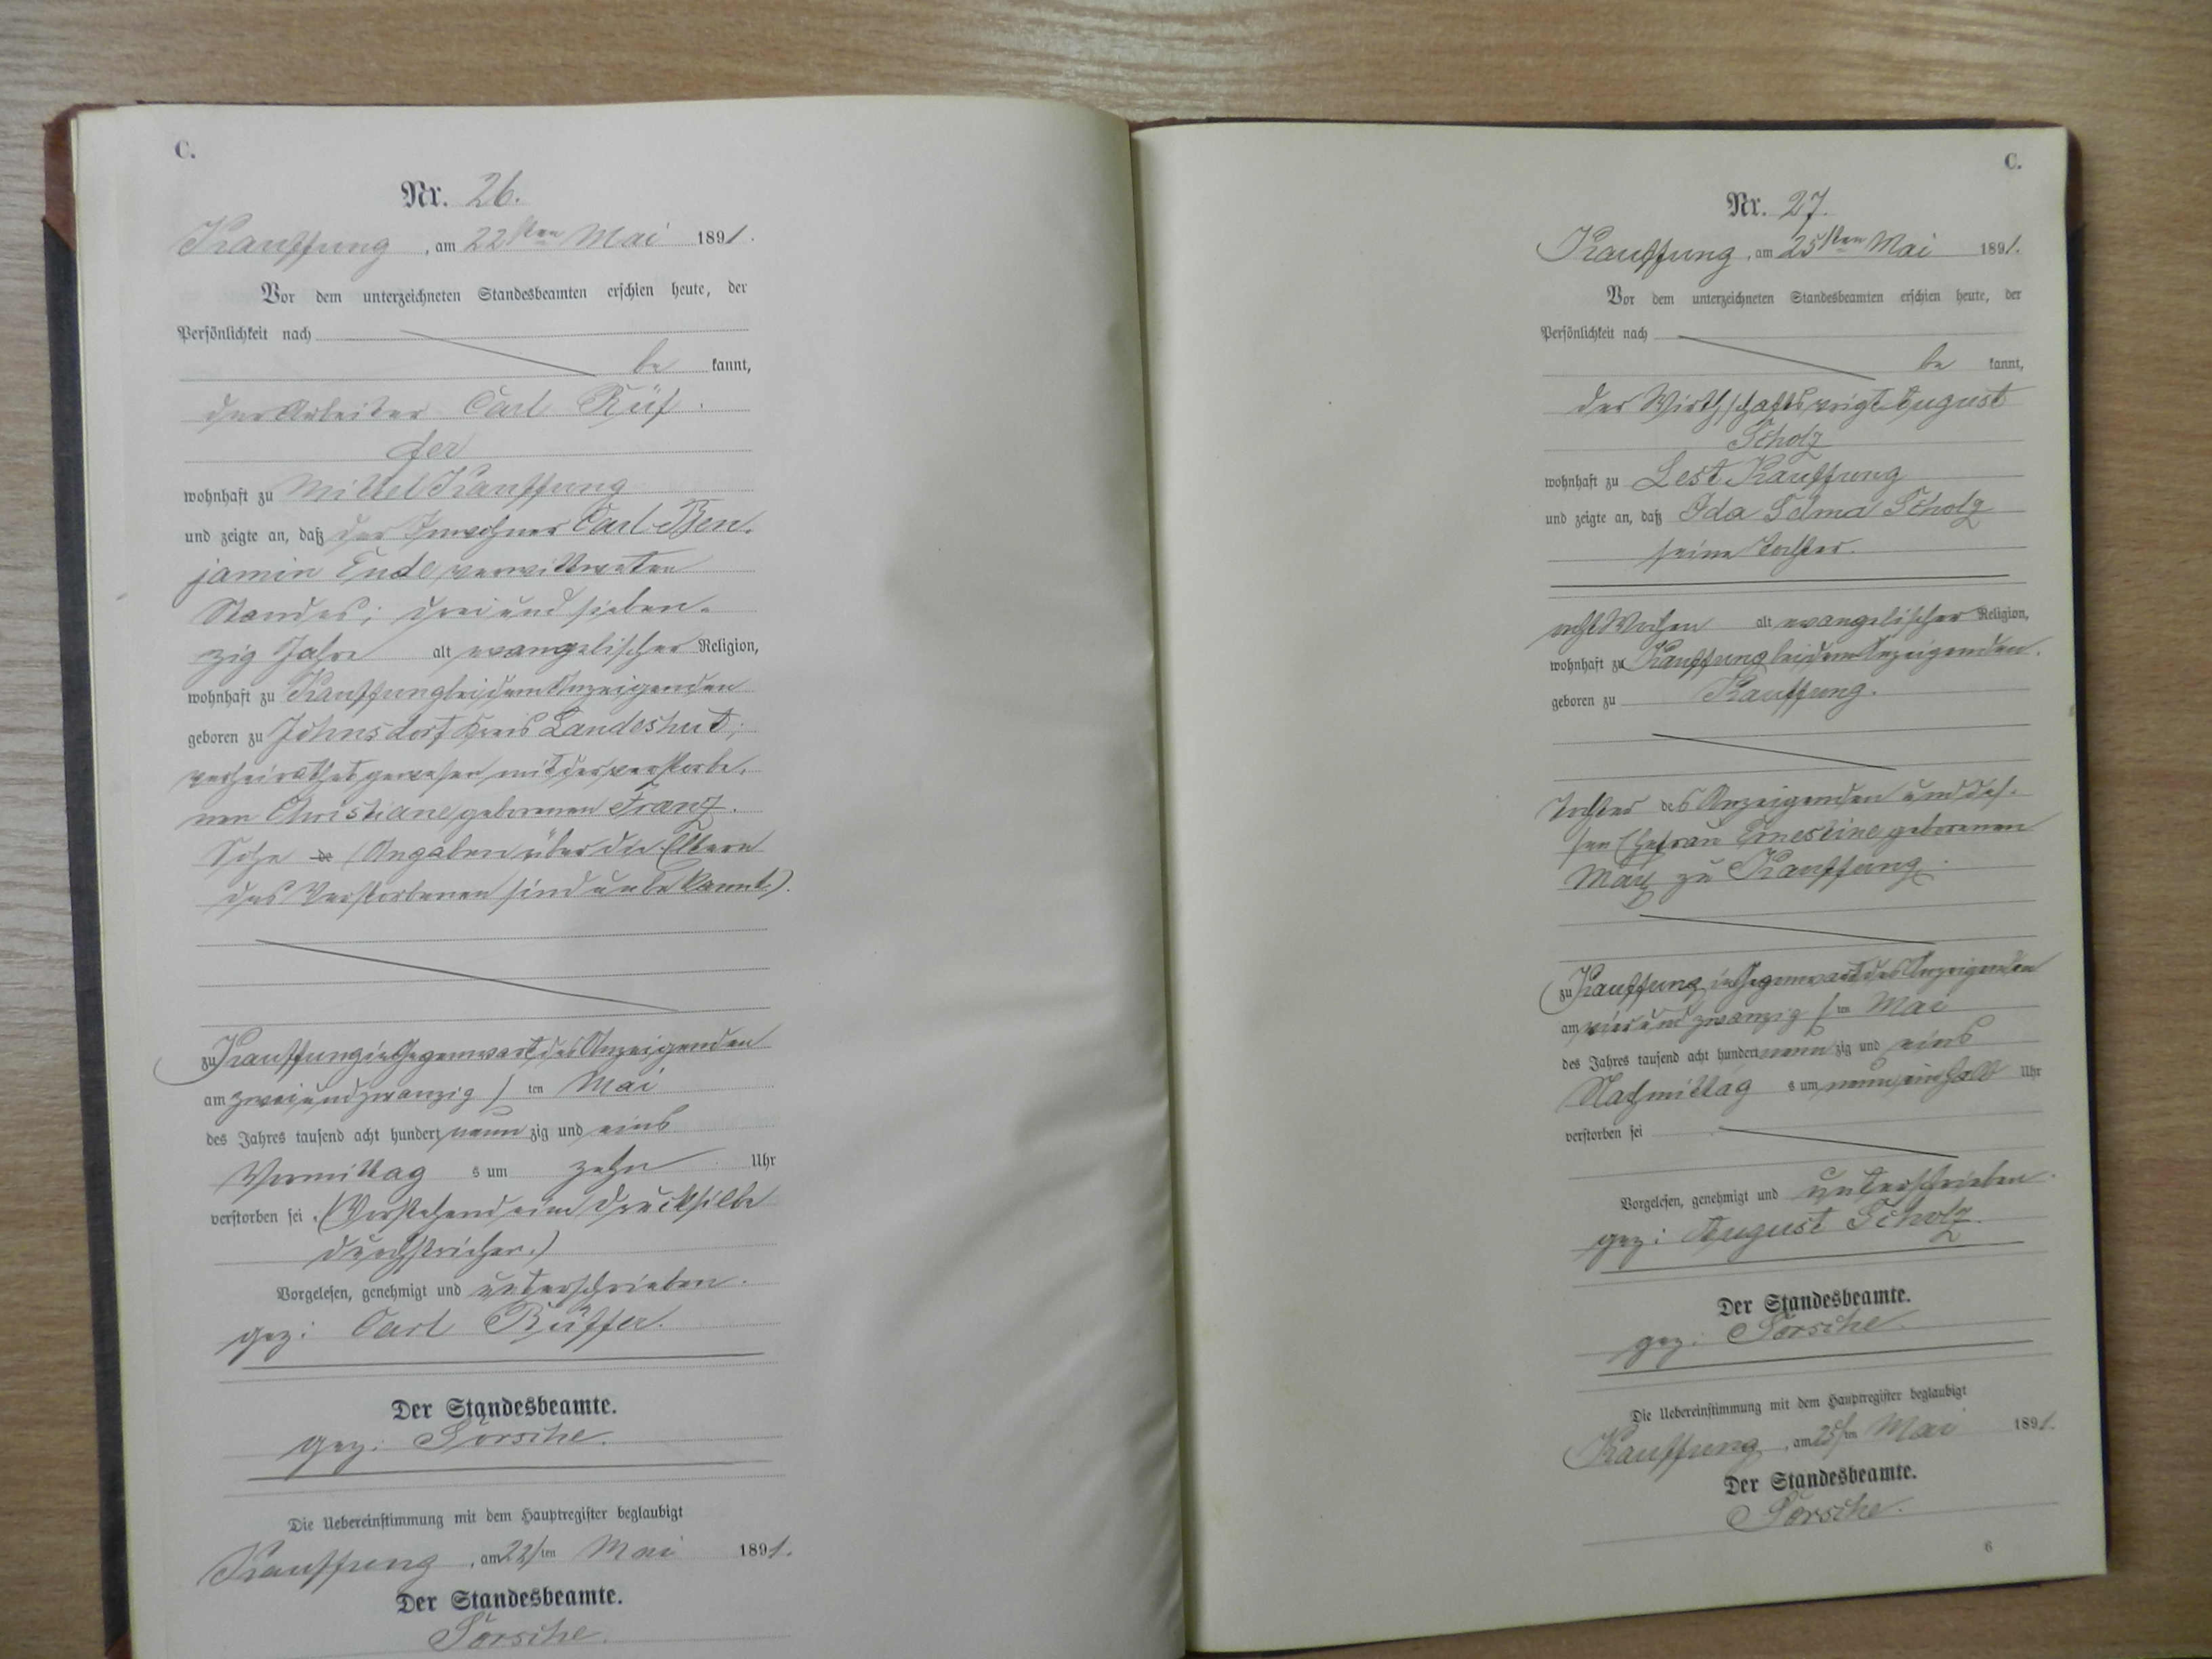 C.
Nr. 26.
Kauffung, am 22sten Mai 1891.
Vor dem unterzeichneten Standesbeamten erschien heute, der
Persönlichkeit nach
be kannt,
der Arbeiter Carl Rüf-
fer
wohnhaft zu Mittel Kauffung
und zeigte an, daß der Inwohner Carl Ben-
jamin Ende verwittweten
Standes; drei und sieben-
zig Jahre alt evangelischer Religion,
wohnhaft zu Kauffung bei dem Anzeigenden
geboren zu Johnsdorf Kreis Landeshut;
verheirathet gewesen mit der verstorbe-
nen Christiane geborenen Franz.
Sohn de (Angaben über die Eltern
des Verstorbenen sind unbekannt).
zu Kauffung in Gegenwart des Anzeigenden
am zwei und zwanzigsten Mai
des Jahres tausend acht hundert neunzig und eins
Vormittags um zehn Uhr
verstorben sei. (Vorstehend eine Drucksilbe
durchstrichen.)
Vorgelesen, genehmigt und unterschrieben.
gez: Carl Rüffer.
Der Standesbeamte.
gez: Sorsche.
Die Uebereinstimmung mit dem Hauptregister beglaubigt
Kauffung, am 22sten Mai 1891.
Der Standesbeamte.
Sorsche.
C.
Nr. 27.
Kauffung, am 25sten Mai 1891.
Vor dem unterzeichneten Standesbeamten erschien heute, der
Persönlichkeit nach
be kannt,
der Wirthschaftsvoigt August
Scholz
wohnhaft zu Lest Kauffung
und zeigte an, daß Ida Selma Scholz
seine Tochter.
acht Wochen alt evangelischer Religion,
wohnhaft zu Kauffung bei dem Anzeigenden.
geboren zu Kauffung.
Tochter des Anzeigenden und des-
sen Ehefrau Ernestine geborenen
zu Kauffung.
zu Kauffung in Gegenwart des Anzeigenden
am vier und zwanzigsten Mai
des Jahres tausend acht hundert neunzig und eins
Nachmittags um neuneinhalb Uhr
verstorben sei
Vorgelesen, genehmigt und unterschrieben.
gez: August Scholz.
Der Standesbeamte.
gez: Sorsche.
Die Uebereinstimmung mit dem Hauptregister beglaubigt
Kauffung, am 25sten Mai 1891.
Der Standesbeamte.
Sorsche.
6